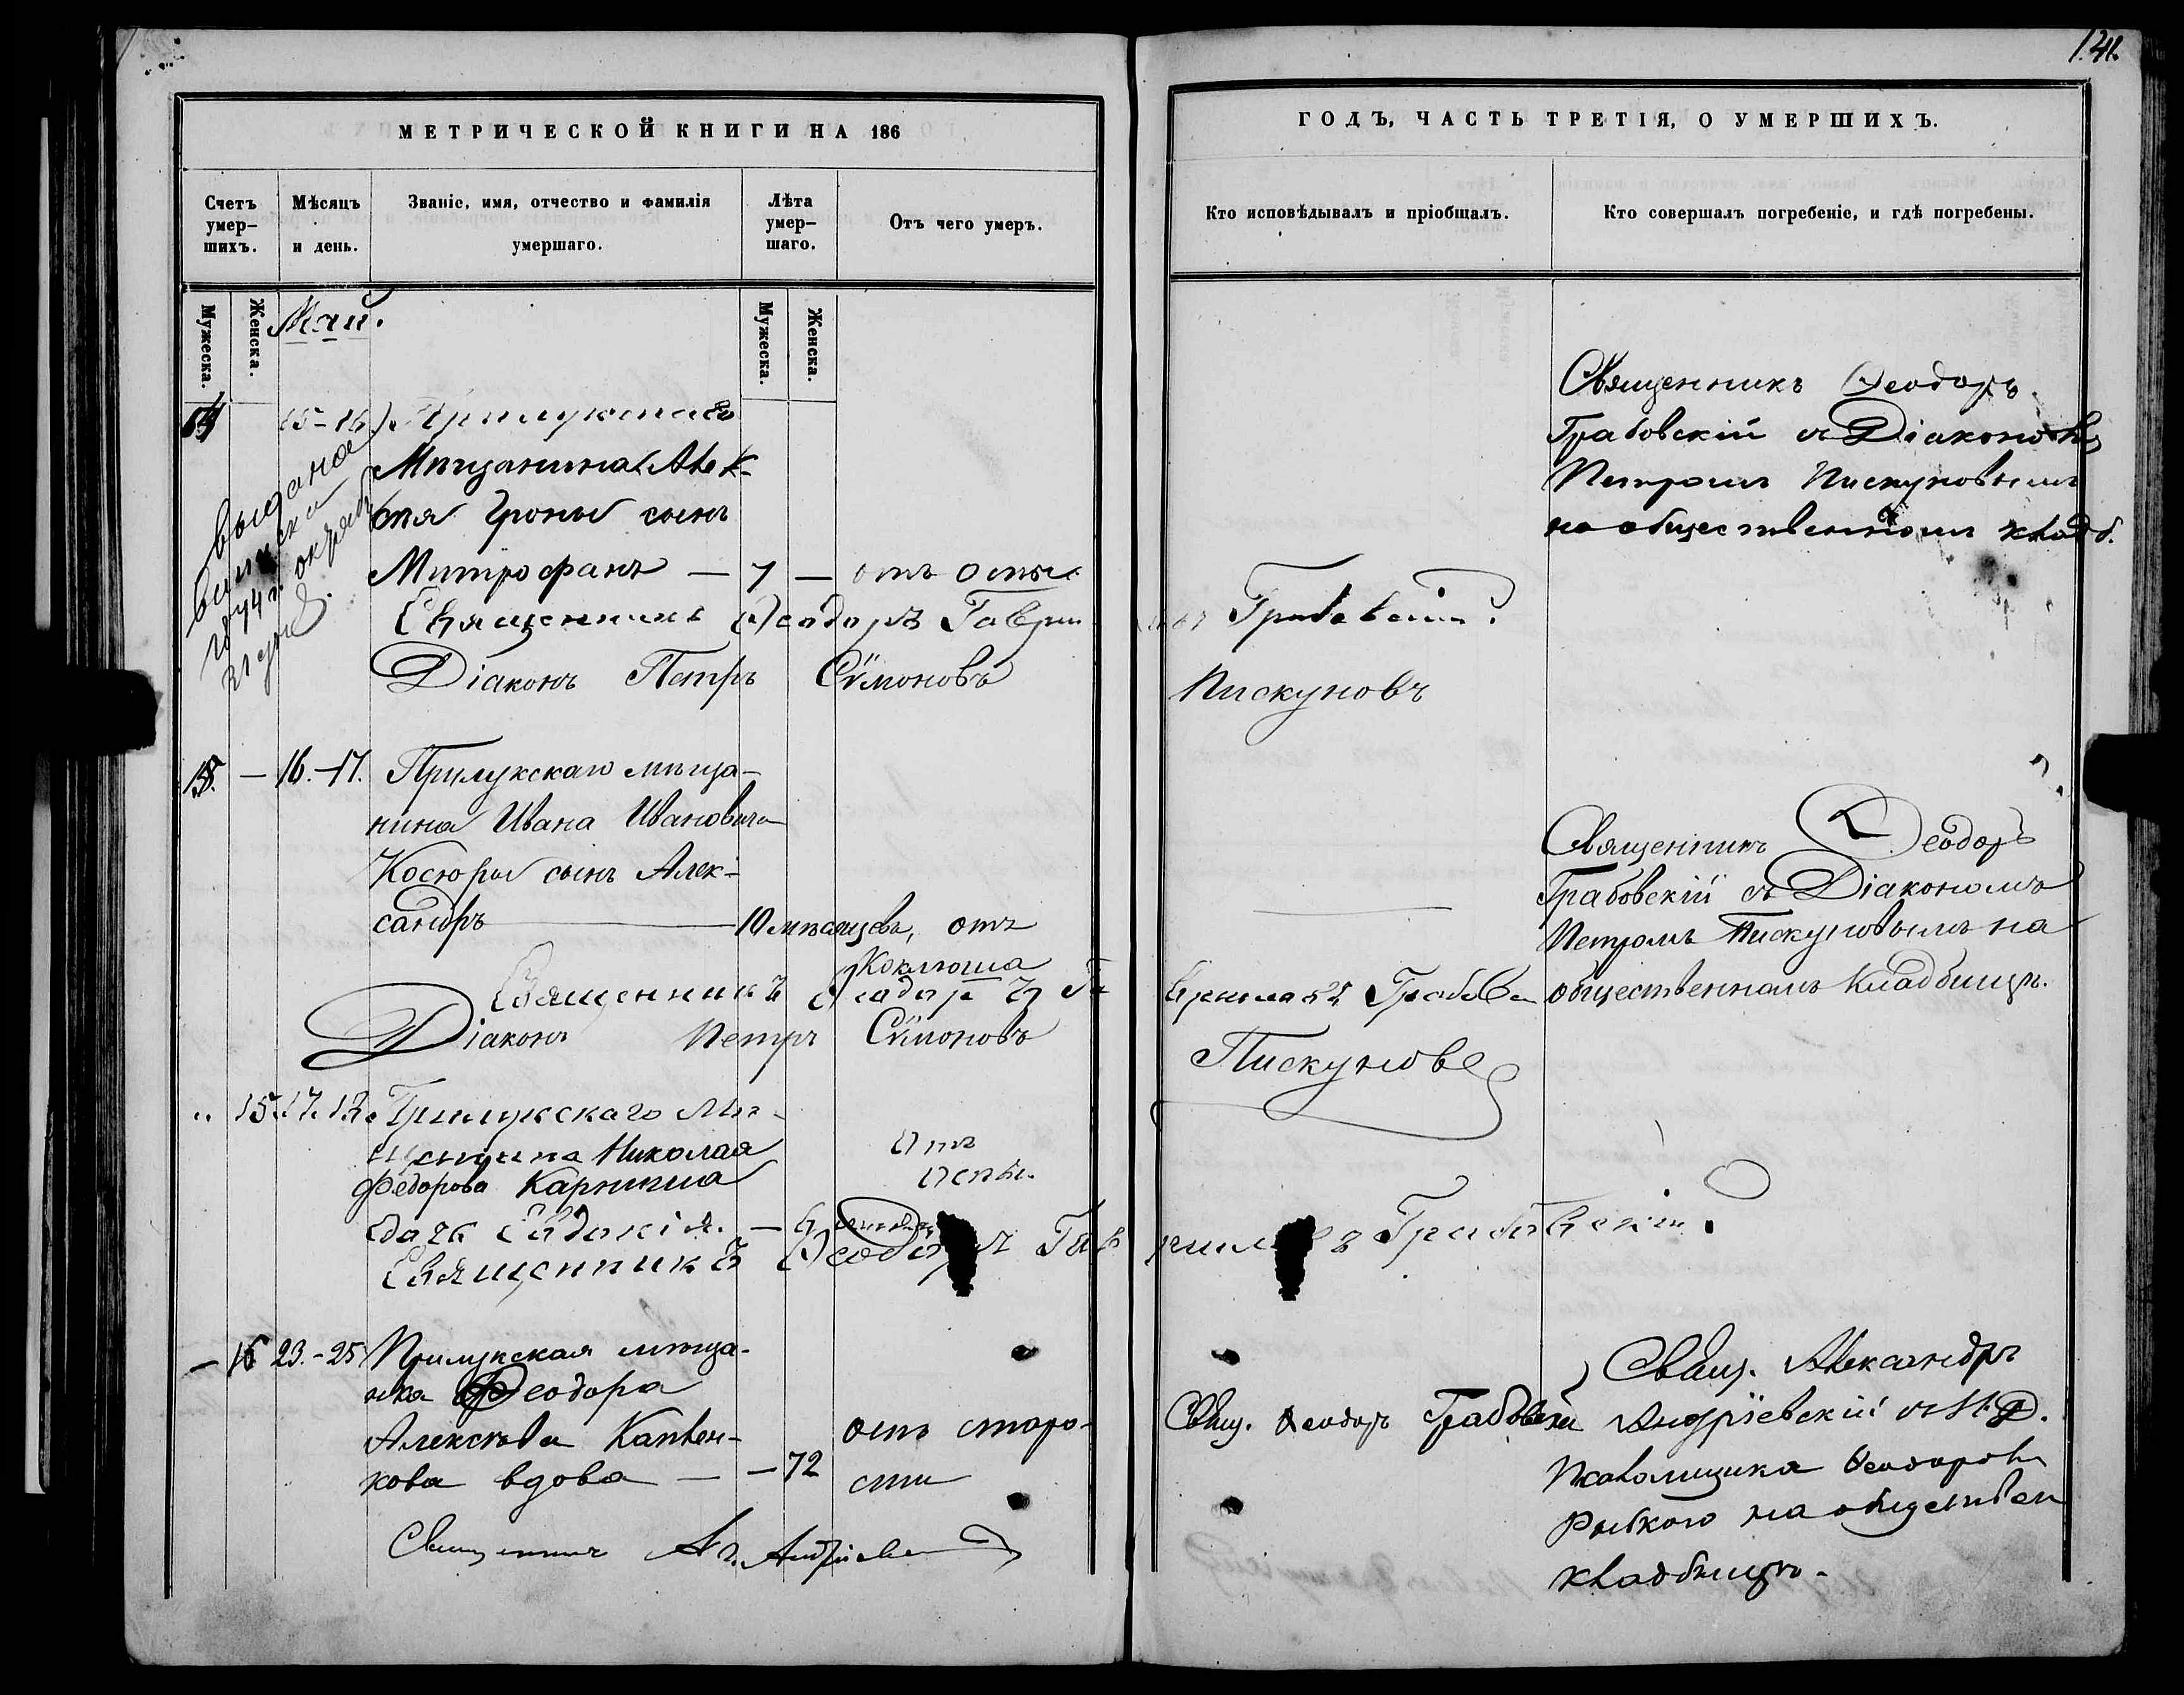 141.
МЕТРИЧЕСКОЙ КНИГИ НА 186
ГОДЪ, ЧАСТЬ ТРЕТІЯ, О УМЕРШИХЪ.
Счетъ умер-шихъ.
Мѣсяцъ и день.
Званіе, имя, отчество и фамилія умершаго.
Лѣта умер-шаго.
Отъ чего умеръ.
Кто исповѣдывалъ и пріобщалъ.
Кто совершалъ погребеніе, и гдѣ погребены.
Мужеска.
Женска.
Май.
Мужеска.
Женска.
15-16 Прилукскаго
Мѣщанина Алек-
сѣя сынъ
Митрофанъ — 7 — отъ оспы
Священникъ Ѳеодоръ Гаври Грабовскій.
Діаконъ Петръ Сѵмоновъ Пискуновъ
Священникъ Ѳеодоръ
Грабовскій съ Діакономъ
Петромъ Пискуновымъ
на общественномъ кладб.
выдана
1874 г.
— 16.-17. Прилукскаго мѣща-
нина Ивана Ивановича
Косюры сынъ Алек-
сандръ — 10 мѣсяцевъ, отъ
Коклюша
Священникъ Ѳеодоръ Га вриловъ Грабовс
Діаконъ Петръ Сѵмоновъ Пискуновъ
Священникъ Ѳеодоръ
Грабовскій съ Діакономъ
Петромъ Пискуновымъ на
общественномъ кладбищѣ.
" 15 17. Прилукскаго Мѣ-
щанина Николая
Федорова
дочь Евдокія. —
Отъ
Оспы.
Священникъ Ѳеодоръ Гав риловъ Грабовскій.
— 16 23.-25 Прилукская мѣща-
нка Ѳеодора
Алексѣева
кова вдова — — 72
отъ старо-
сти
Свящ. Ѳеодоръ Грабовскій
Свящ. Александръ
Андріевскій съ И. Д.
Псаломщика Ѳеодоромъ
на обществен
кладбищѣ.
Священникъ Ал. Андріевс